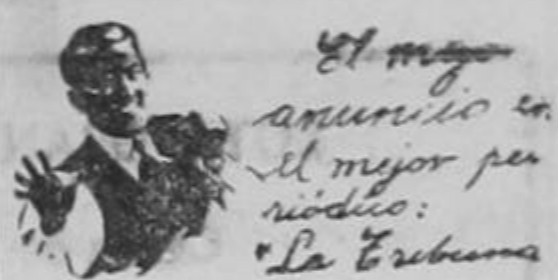 El
anuncio en
el mejor pe-
riódico:
"La Tribuna